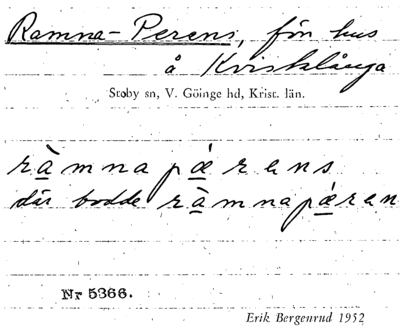 Ramna-Perens, förr hus
å Kvisslånga
Stoby sn, V. Göinge hd, Krist. län.
ràmnapǽrens
där bodde ràmnapǽren
Nr 5366.
Erik Bergenrud 1952